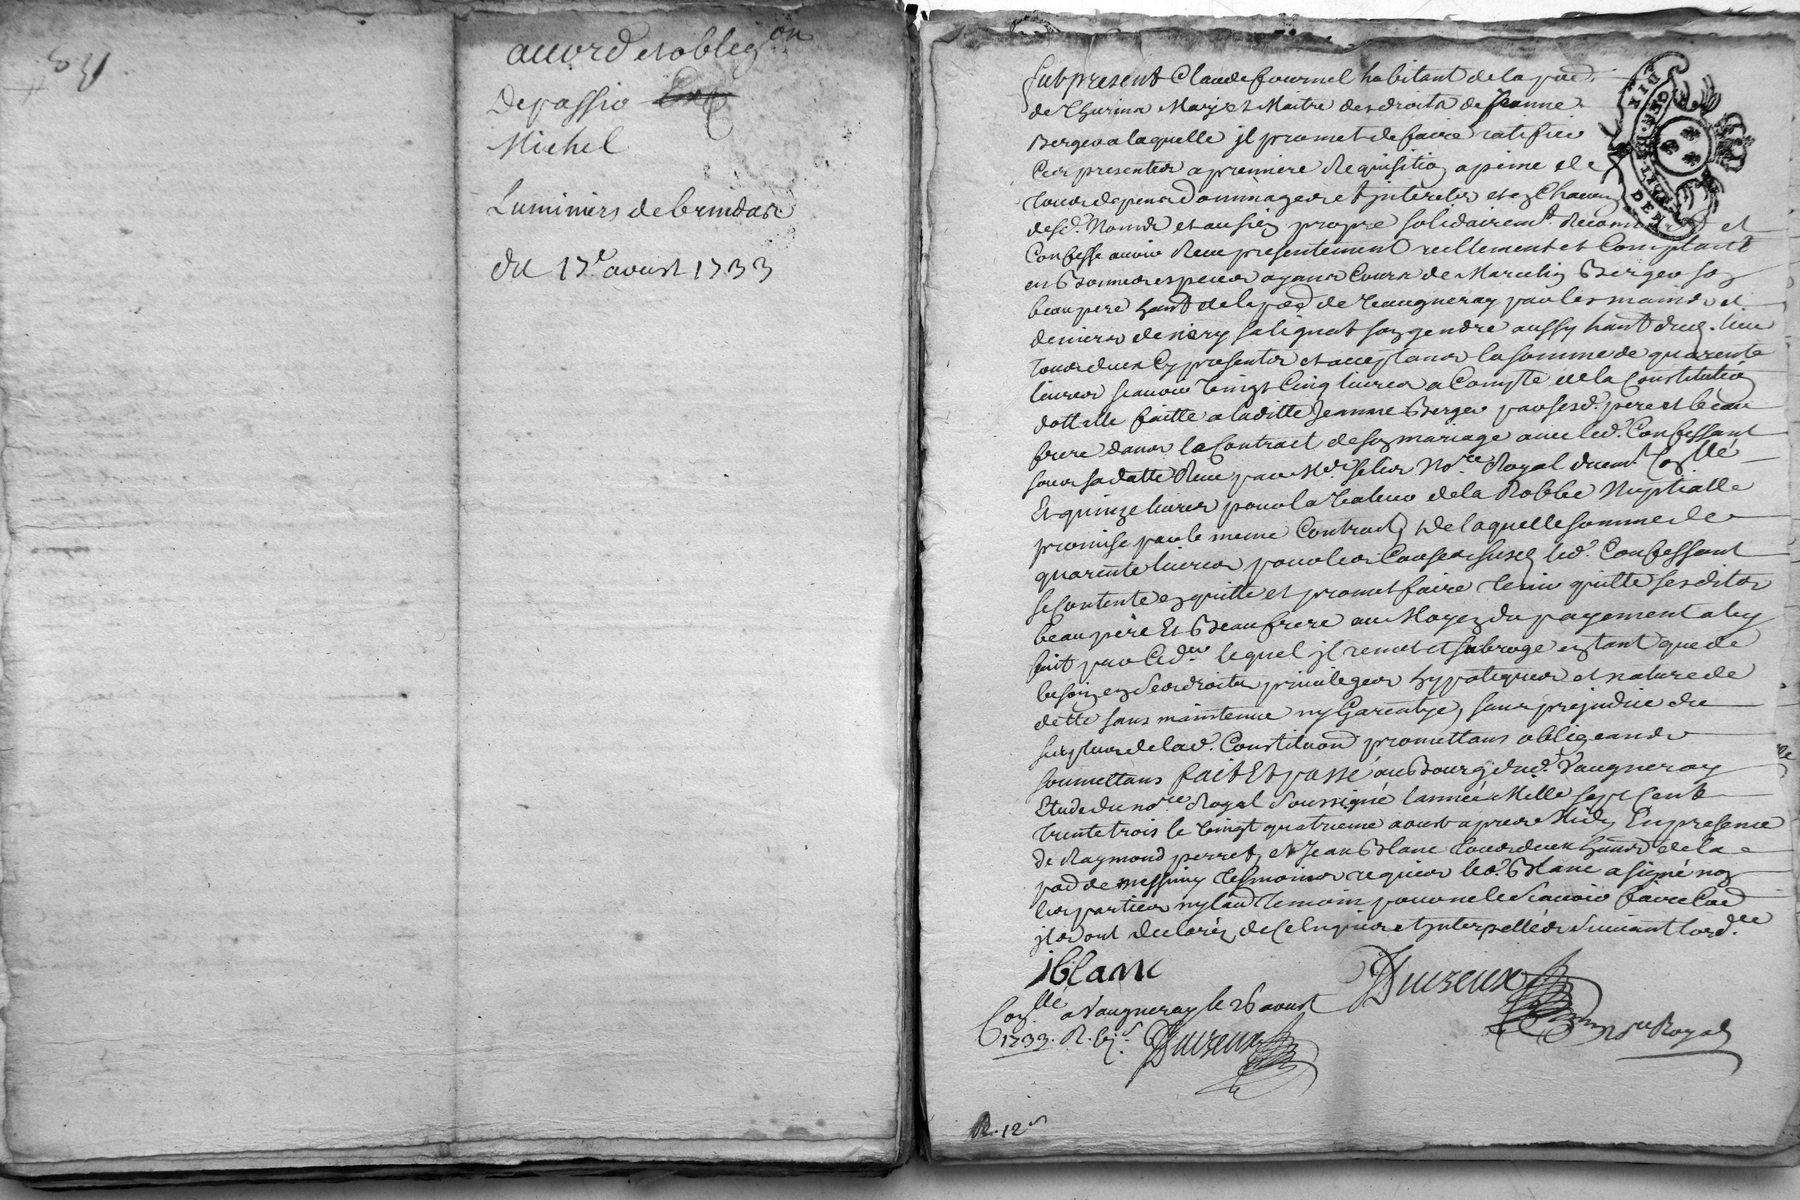 accord et oblig.on
Depassio
Michel
Luminiers de brindas
du 17.e aoust 1733
Fut present Claude fournel habitant de la par.
de Thurins Mary et Maitre des droits de Jeanne
Berger a laquelle jl promet de faire ratifier
Ces presentes a premiere Requisition a peine de
tous depens Dommages et jnterets et en Chacun
desd. Noms et au sien propre solidairemt. Reconnu et
Confesse avoir Receu presentement reellement et Comptant
en Bonnes especes ayant Cours de Marcelin Berger son
beau pere hant de la par de Vaugneray par les mains et
deniers de son gendre aussy hant dud. lieu
tous deux Cy presents et acceptans la somme de quarente
livres scavoir vingt Cinq livres a Compte de la Constitution
dottalle faitte a laditte Jeanne Berger par sesd. pere et beau
frere dans le Contract de son mariage avec led. Confessant
sous sa datte Receu par No.re Royal Con.llé
Et quinze livres pour la valleur de la Robbe Nuptialle
promise par le meme Contract, de laquelle somme de
quarente livres pour les Causes susd. led. Confessant
se Contente en quitte et promet faire tenir quitte ses dits
beau père Et Beau frere au Moyen du payement a luy
fait par lequel jl remet et subroge en tant que de
besoin en ses droits privileges hypoteques et nature de
dette sans maintenue ny Garentye, sans prejudice du
surplus de lad. Constituon promettans obligeans
soumettans fait Et passé au Bourg dud. Vaugneray
Etude du no.re Royal soussigné l'année Mille sept Cent
trente trois le vingt quatrieme aoust apres Midy En presence
de Raymond perret, et Jean Blanc tous deux hants de la
par de messimy tesmoins requis led. Blanc a signé non
les parties ny l'au. temoin pour ne le scavoir faire
jls ont declaré de Ce Enquis et jnterpellés suivant l'ord.ce
jblanc
Duzeux
Con.llé a Vaugneray le 26 aoust
No.re Royal
1733. R.
Duzeux
R. 12 s